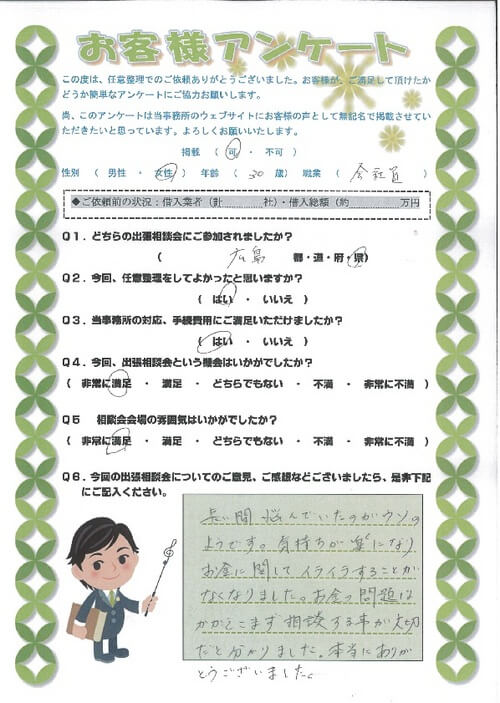 お客様アンケート
この度は、任意整理でのご依頼ありがとうございました。お客様が、ご満足して頂けたか
どうか簡単なアンケートにご協力お願いします。
尚、このアンケートは当事務所のウェブサイトにお客様の声として無記名で掲載させてい
ただきたいと思っています。よろしくお願いいたします。
掲載 ( 可 ・ 不可 )
性別 ( 男性 ・ 女性 ) 年齢 ( 30 歳) 職業 ( 会社員 )
◆ご依頼前の状況:借入業者(計 社)・借入総額(約 万円
Q1.どちらの出張相談会にご参加されましたか?
( 広島 都・道・府・県)
Q2.今回、任意整理をしてよかったと思いますか?
( はい ・ いいえ )
Q3.当事務所の対応、手続費用にご満足いただけましたか?
( はい ・ いいえ )
Q4.今回、出張相談会という機会はいかがでしたか?
( 非常に満足 ・ 満足 ・ どちらでもない ・ 不満 ・ 非常に不満 )
Q5 相談会会場の雰囲気はいかがでしたか?
( 非常に満足 ・ 満足 ・ どちらでもない ・ 不満 ・ 非常に不満 )
Q6.今回の出張相談会についてのご意見、ご感想などございましたら、是非下記
にご記入ください。
長い間 悩んでいたのがウソの
ようです。気持ちが楽になり
お金に関してイライラすることが
なくなりました。お金の問題は
かかえこまず相談する事が大切
だと分かりました。本当にありが
とうございました。